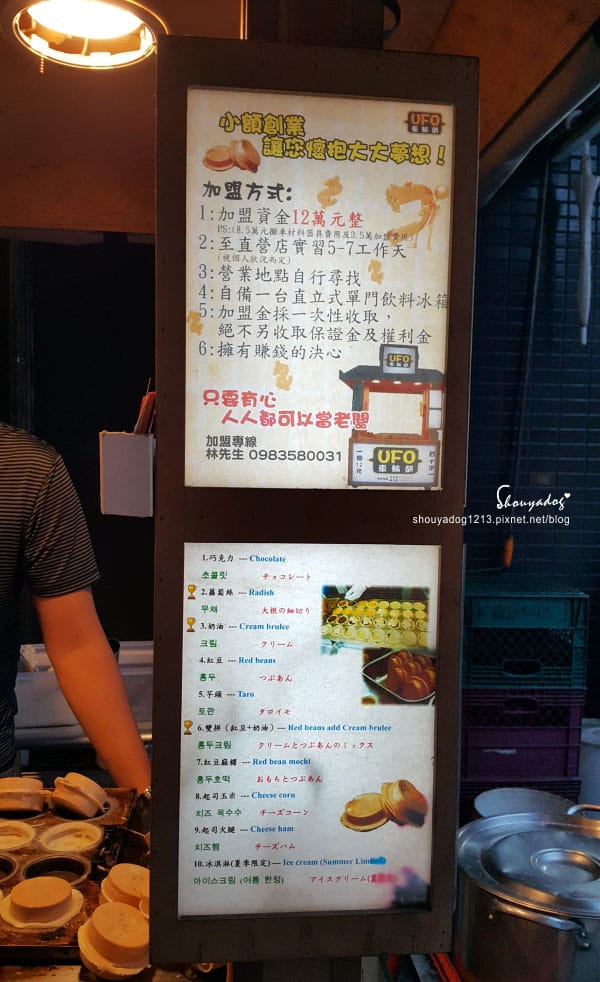 小額創業
讓您懷抱大大夢想!
UFO
車輪餅
加盟方式:
1:加盟資金12萬元整
PS:(8.5萬元攤車材料器具費用及3.5萬加盟費用)
2:至直營店實習5-7工作天
(視個人狀況而定)
3:營業地點自行尋找
4:自備一台直立式單門飲料冰箱
5:加盟金採一次性收取,
絕不另收取保證金及權利金
6:擁有賺錢的決心
只要有心
人人都可以當老闆
加盟專線
林先生 0983580031
UFO
UFO
車輪餅
Shouyadog
shouyadog1213.pixnet.net/blog
1.巧克力 --- Chocolate
초콜릿 チョコレート
2.蘿蔔絲 --- Radish
무채 大根の細切り
3.奶油 --- Cream brulee
크림 クリーム
4.紅豆 --- Red beans
홍두 つぶあん
5.芋頭 --- Taro
토란 タロイモ
6.雙拼(紅豆+奶油) --- Red beans add Cream brulee
홍두크림 クリームとつぶあんのミックス
7.紅豆麻糬 --- Red bean mochi
홍두호떡 おもちとつぶあん
8.起司玉米 --- Cheese corn
치즈 옥수수 チーズコーン
9.起司火腿 --- Cheese ham
치즈햄 チーズハム
10.冰淇淋(夏季限定) --- Ice cream (Summer Limited)
아이스크림 (여름 한정) アイスクリーム(